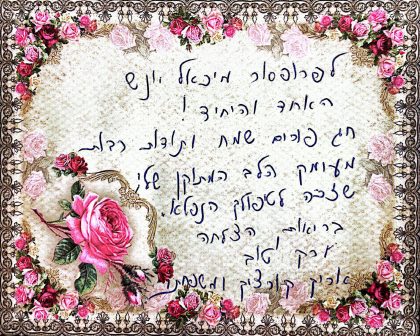 לפרופסור מיכאל יונש
האחד והיחיד!
חג פורים שמח ותודות רבות
מעומק הלב המתוקן שלי,
שזכה לטפולך הנפלא.
בריאות הצלחה
וכט"ב
אריק קורציק ומשפחתו